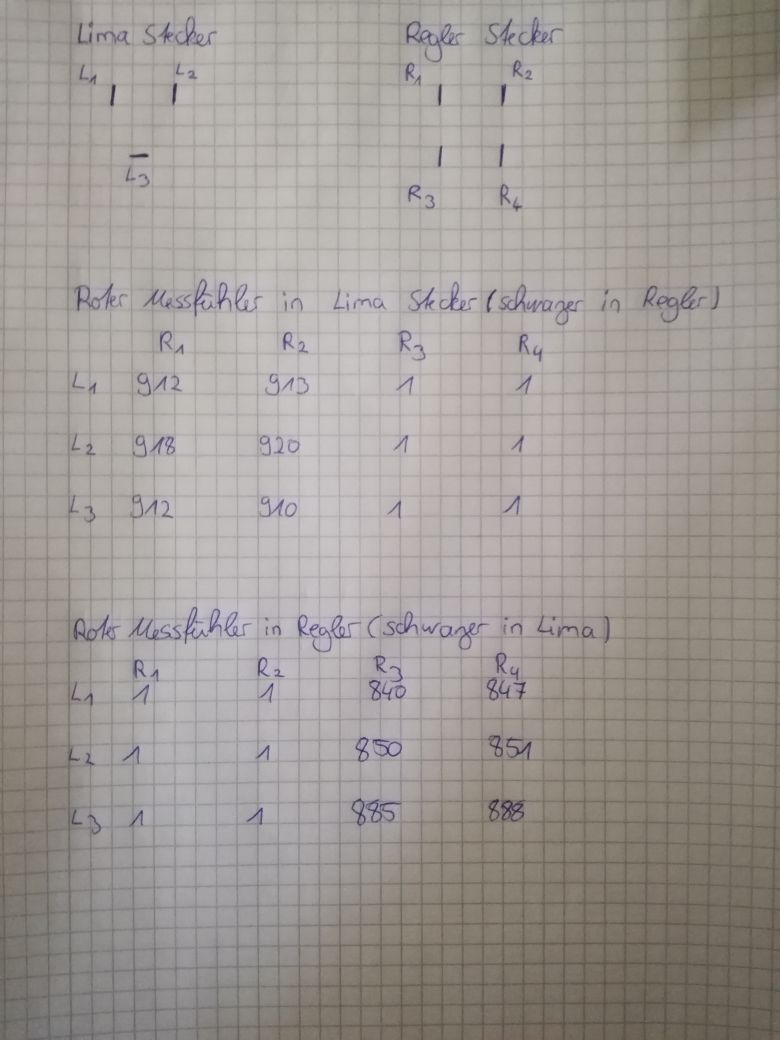 Lima Stecker Regler Stecker
L1 L2 R1 R2
L3
R3 R4
Roter Messfühler in Lima Stecker (schwarzer in Regler)
R1 R2 R3 R4
L1 912 913 1 1
L2 918 920 1 1
L3 912 910 1 1
Roter Messfühler in Regler (schwarzer in Lima)
R1 R2 R3 R4
L1 1 1 840 847
L2 1 1 850 851
L3 1 1 885 888